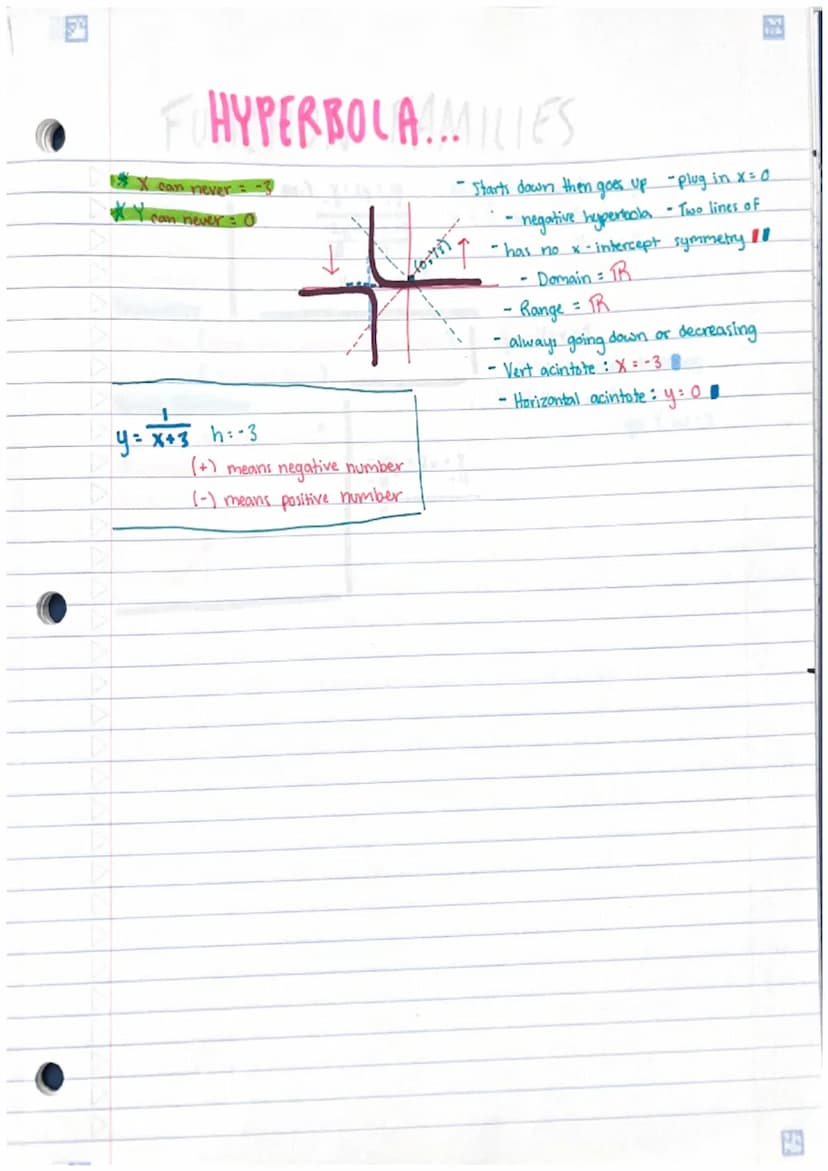 HYPERBOLA...
* X can never = -3
* Y can never = 0
- Starts down then goes up - plug in x = 0
- negative hyperbola - Two lines of
- has no x-intercept symmetry
- Domain = ℝ
- Range = ℝ
- always going down or decreasing
- Vert acintote : x = -3
- Horizontal acintote : y = 0
(0, 1/3)
y = 1/x+3 h = -3
(+) means negative number
(-) means positive number
FU AMILIES